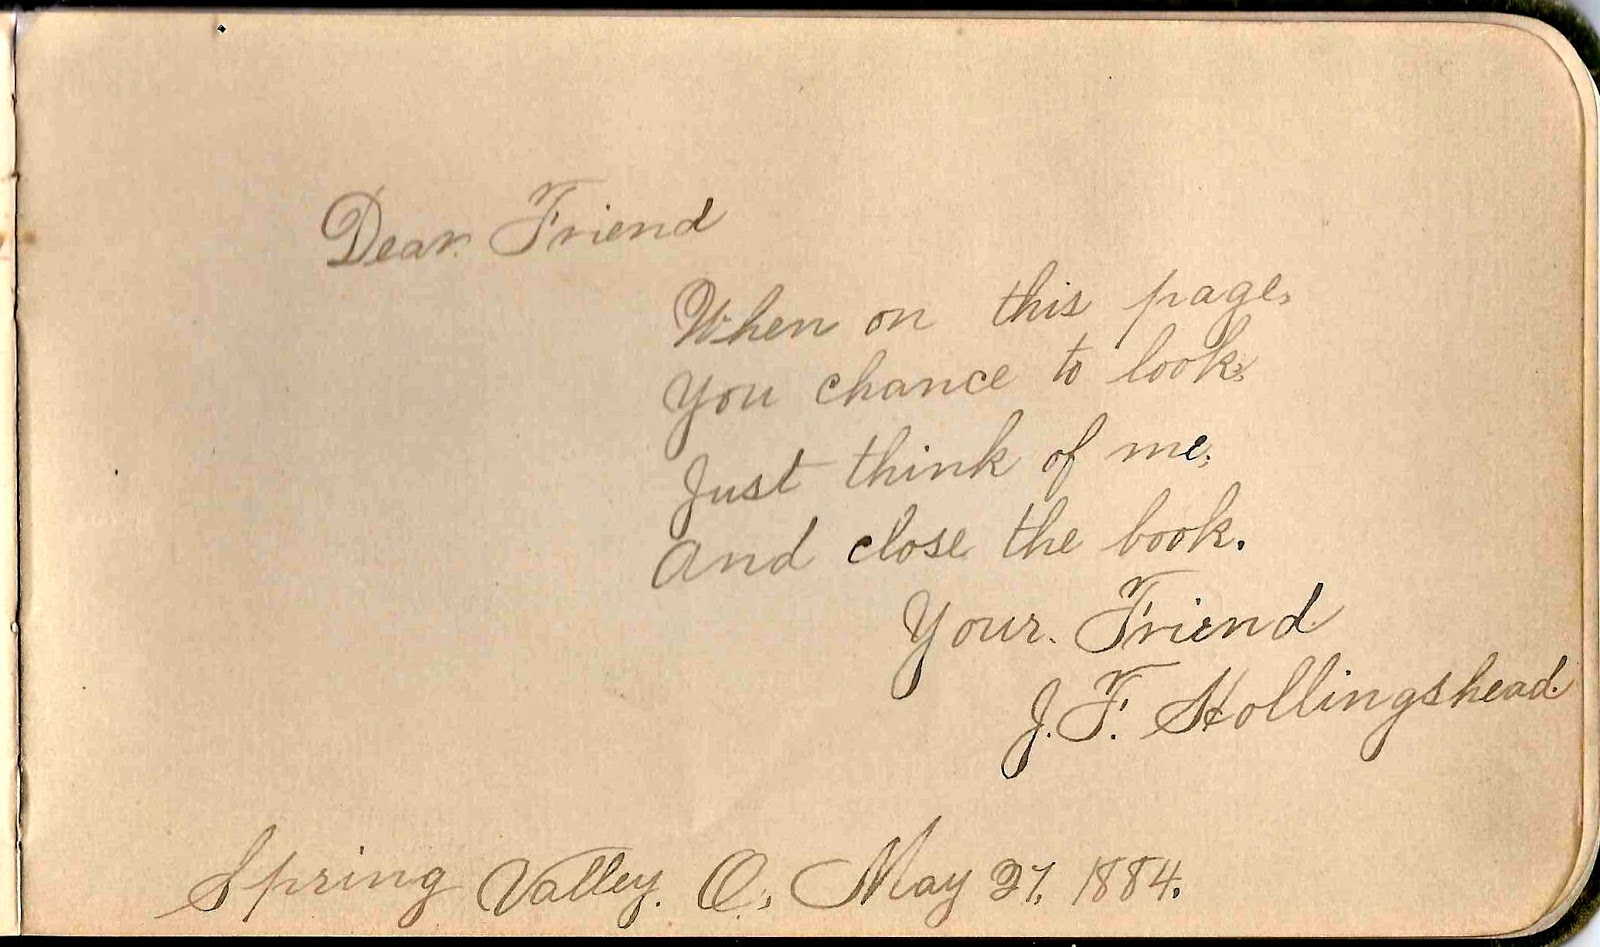 Dear Friend
When on this page,
You chance to look,
Just think of me,
And close the book.
Your Friend
J. F. Hollingshead.
Spring Valley. O., May 27. 1884.